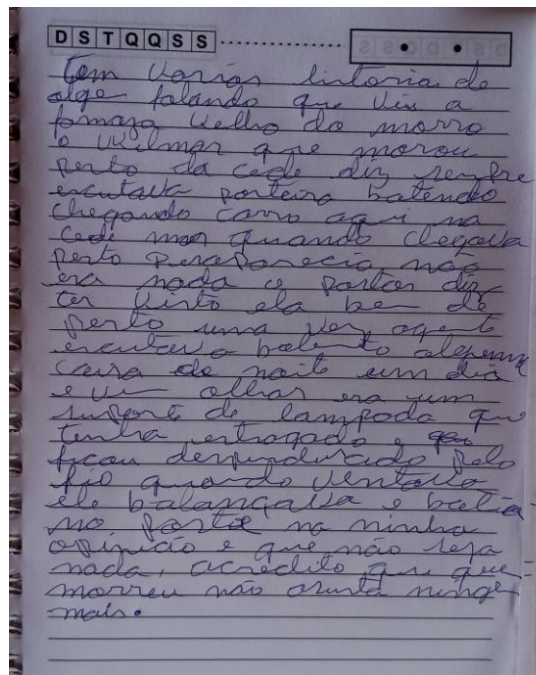 D S T Q Q S S
Tem varias historias de
alge falando que viu a
famaza velha do morro
o Vilmar que morou
perto da cede diz sempre
escutava porteira batendo
chegando carro aqui na
cede mas quando chegava
perto não
era nada o pastor diz
ter visto ela bem de
perto uma vez agente
escutava batento alguma
coisa de noite um dia
e olhar era um
suporte de lampoda que
tinha estragado e
ficou despindurado pelo
fio quando ventava
ele balançava e batia
no poste na minha
opinião e que não seja
nada, acredito que que
morreu não asusta ningem
mais.